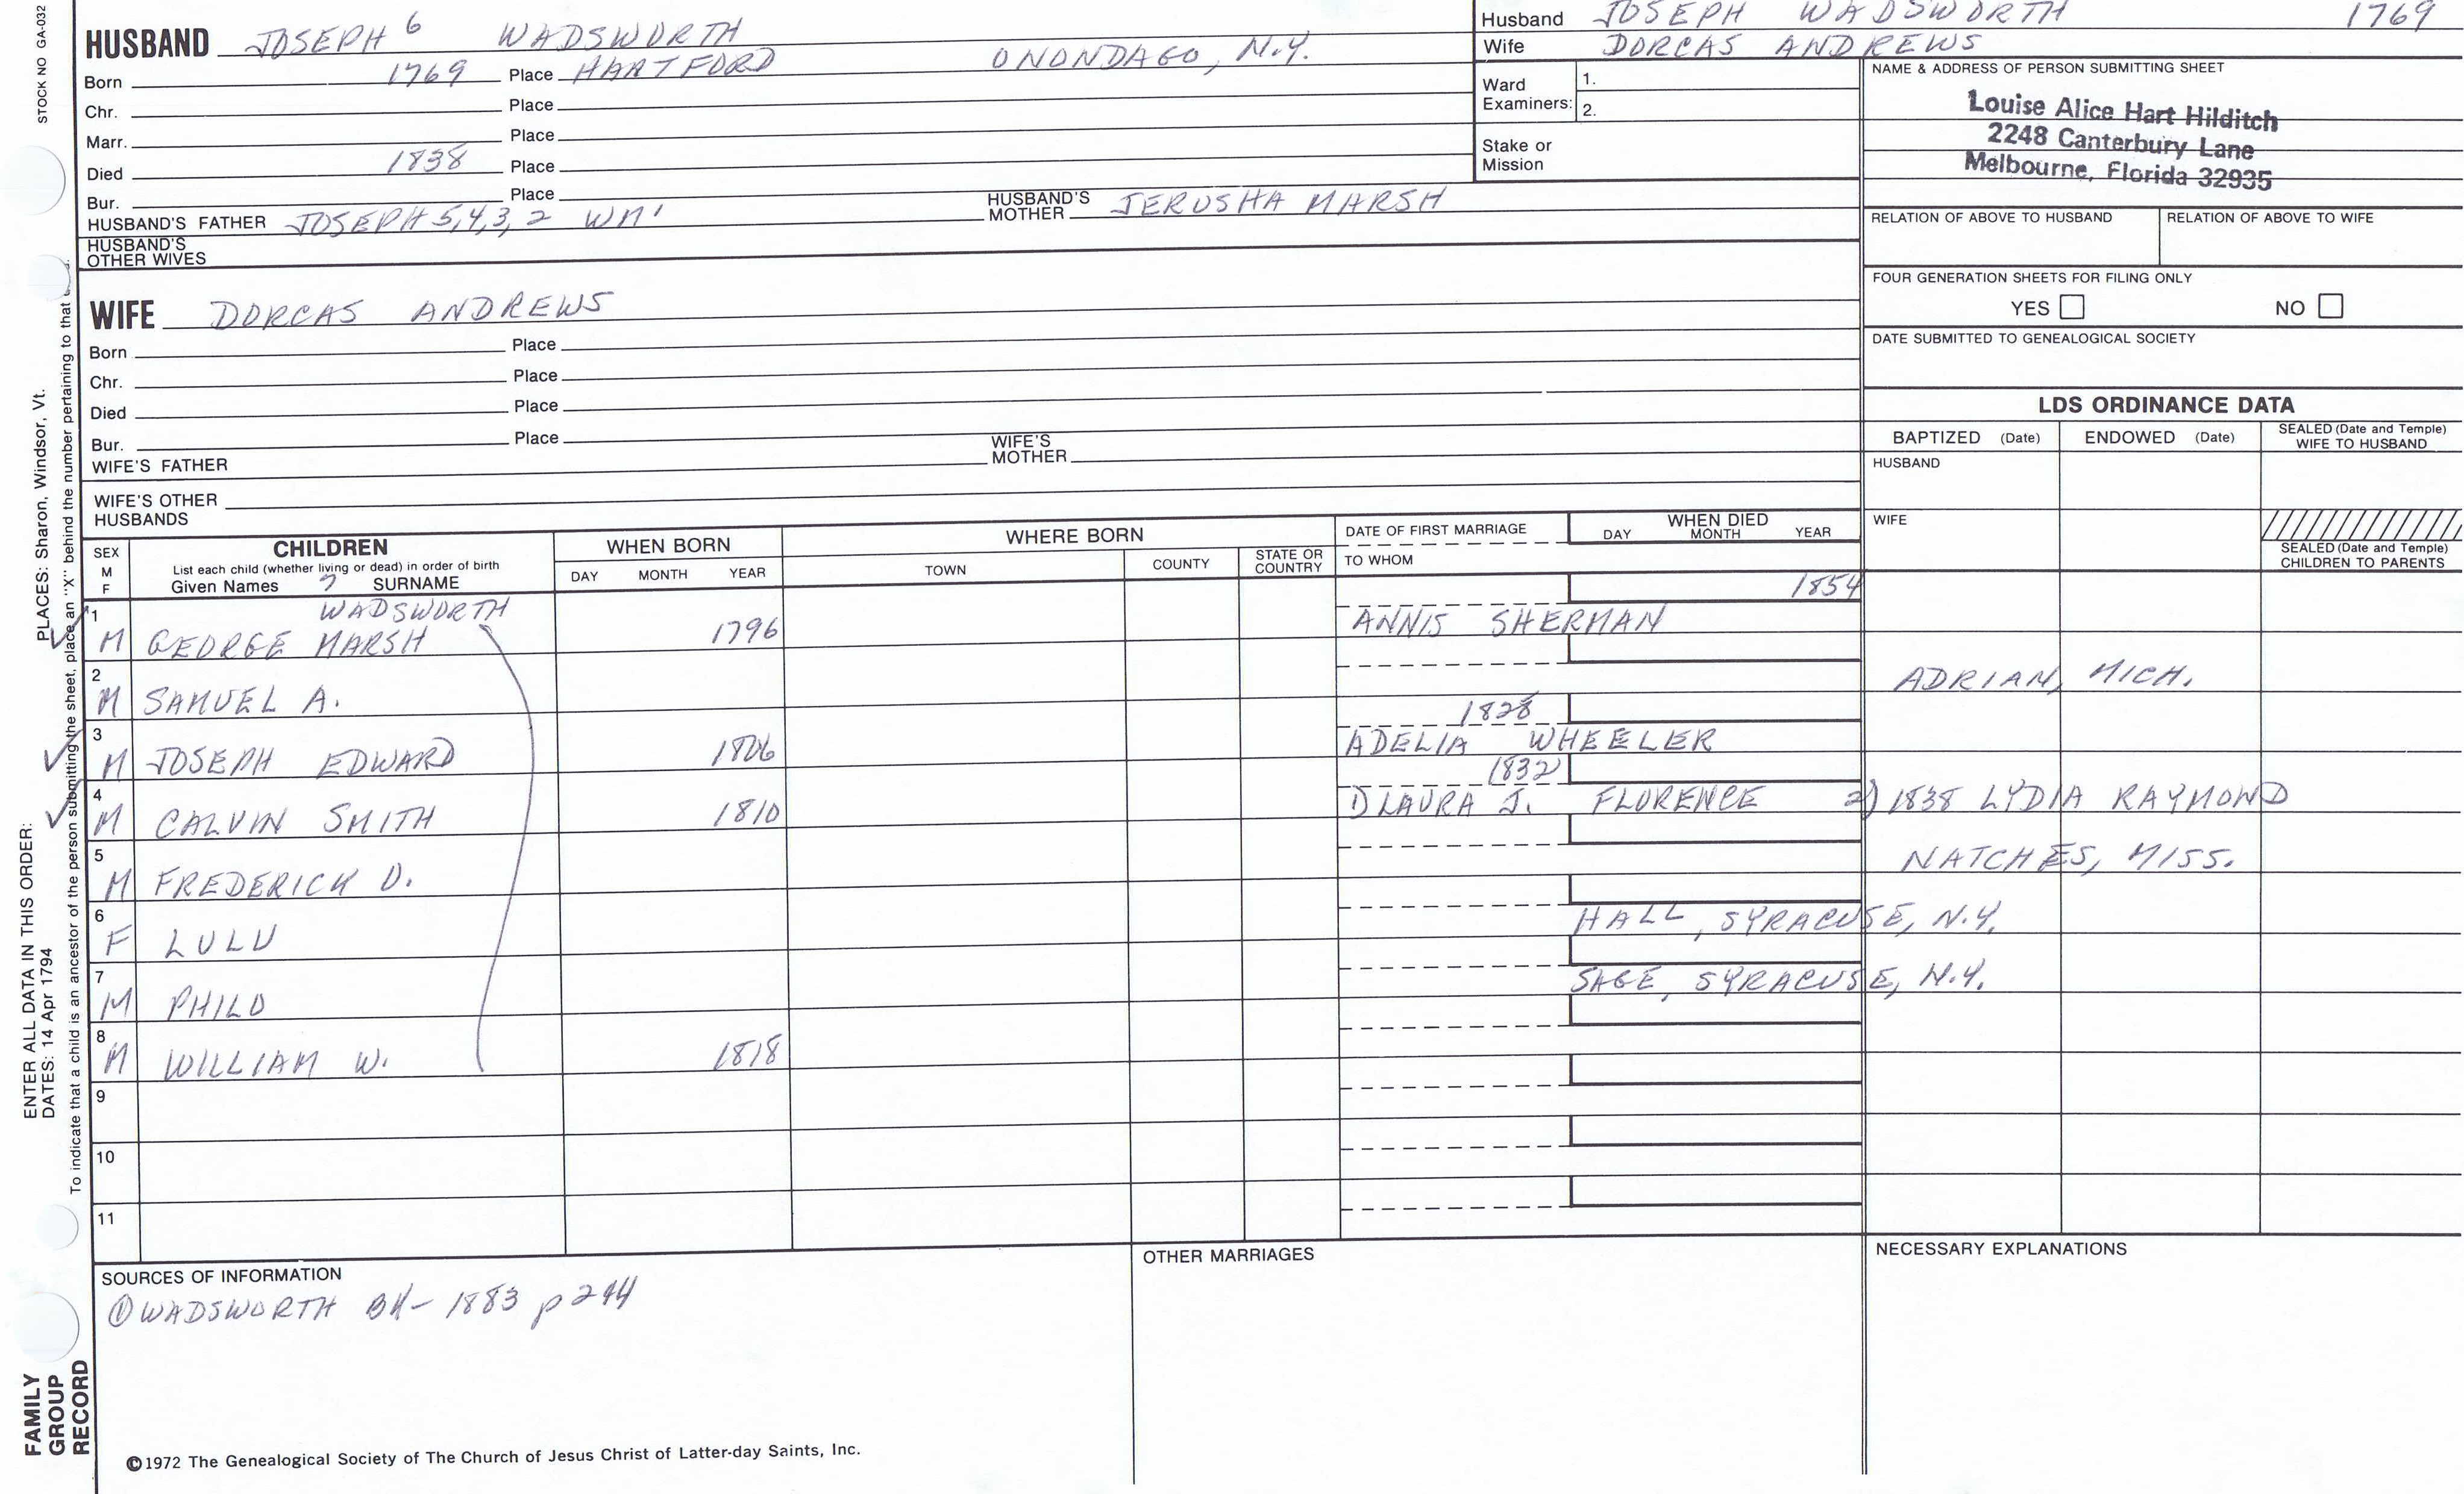 STOCK NO GA-032
HUSBAND JOSEPH 6 WADSWORTH
Born 1769 Place HARTFORD ONONDAGO, N.Y.
Chr. Place
Marr. Place
Died 1838 Place
Bur. Place
HUSBAND'S FATHER JOSEPH 5,4,3,2 WM' HUSBAND'S MOTHER JERUSHA MARSH
HUSBAND'S OTHER WIVES
WIFE DORCAS ANDREWS
Born Place
Chr. Place
Died Place
Bur. Place
WIFE'S FATHER WIFE'S MOTHER
WIFE'S OTHER HUSBANDS
Husband JOSEPH WADSWORTH 1769
Wife DORCAS ANDREWS
Ward Examiners: 1.
2.
Stake or Mission
NAME & ADDRESS OF PERSON SUBMITTING SHEET
Louise Alice Hart Hilditch
2248 Canterbury Lane
Melbourne, Florida 32935
RELATION OF ABOVE TO HUSBAND RELATION OF ABOVE TO WIFE
FOUR GENERATION SHEETS FOR FILING ONLY
YES NO
DATE SUBMITTED TO GENEALOGICAL SOCIETY
LDS ORDINANCE DATA
BAPTIZED (Date) ENDOWED (Date) SEALED (Date and Temple) WIFE TO HUSBAND
HUSBAND
WIFE
SEALED (Date and Temple) CHILDREN TO PARENTS
SEX M F
CHILDREN
List each child (whether living or dead) in order of birth
Given Names 7 SURNAME
WHEN BORN
DAY MONTH YEAR
WHERE BORN
TOWN COUNTY STATE OR COUNTRY
DATE OF FIRST MARRIAGE
TO WHOM
WHEN DIED
DAY MONTH YEAR
1 M GEORGE MARSH WADSWORTH 1796 ANNIS SHERMAN 1854
2 M SAMUEL A. ADRIAN, MICH.
3 M JOSEPH EDWARD 1806 1828 ADELIA WHEELER
4 M CALVIN SMITH 1810 1832 1) LAURA J. FLORENCE 2) 1838 LYDIA RAYMOND
5 M FREDERICK D. NATCHES, MISS.
6 F LULU HALL, SYRACUSE, N.Y.
7 M PHILO SAGE, SYRACUSE, N.Y.
8 M WILLIAM W. 1818
9
10
11
SOURCES OF INFORMATION
① WADSWORTH BK- 1883 p 244
OTHER MARRIAGES
NECESSARY EXPLANATIONS
©1972 The Genealogical Society of The Church of Jesus Christ of Latter-day Saints, Inc.
FAMILY GROUP RECORD
ENTER ALL DATA IN THIS ORDER:
DATES: 14 Apr 1794
PLACES: Sharon, Windsor, Vt.
To indicate that a child is an ancestor of the person submitting the sheet, place an "X" behind the number pertaining to that